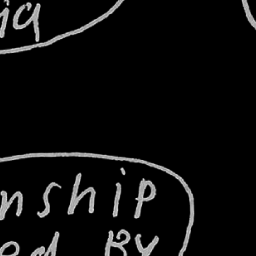 ia
nship
ed By